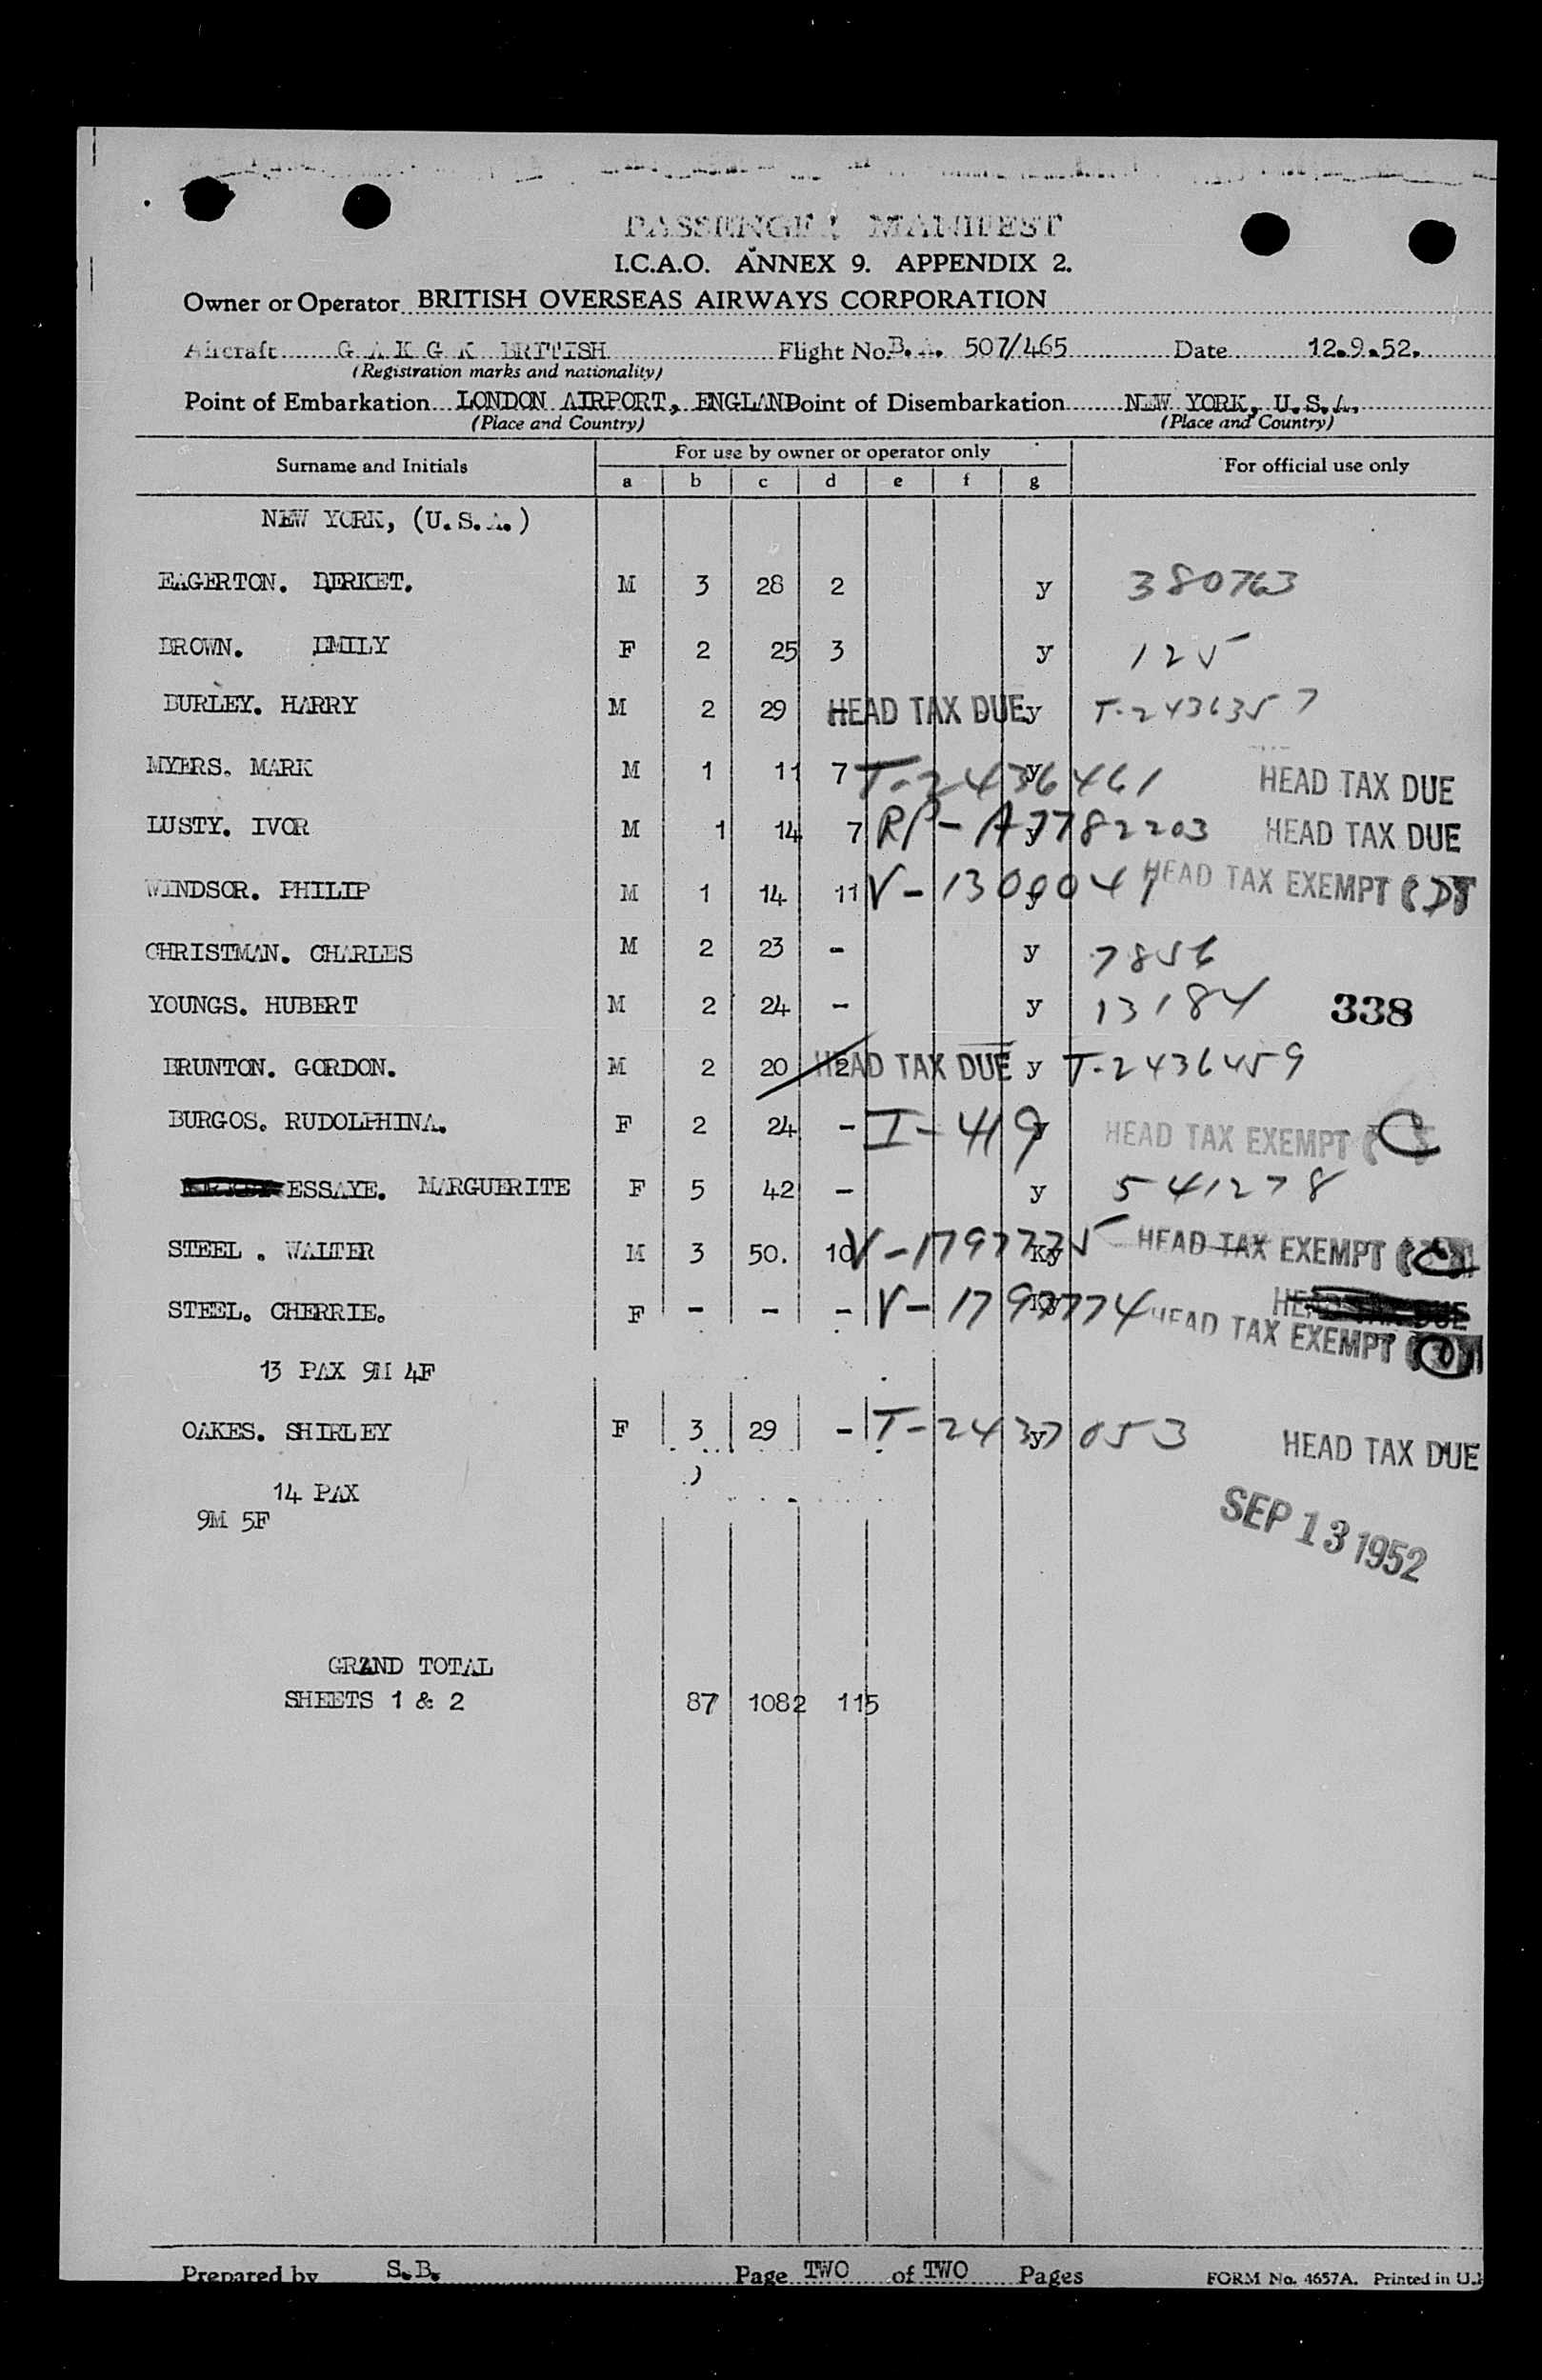 PASSENGER MANIFEST
I.C.A.O. ANNEX 9. APPENDIX 2.
Owner or Operator BRITISH OVERSEAS AIRWAYS CORPORATION
Aircraft G A K G K BRITISH Flight No. B.A. 507/465 Date 12.9.52.
(Registration marks and nationality)
Point of Embarkation LONDON AIRPORT, ENGLAND Point of Disembarkation NEW YORK, U.S.A.
(Place and Country) (Place and Country)
Surname and Initials For use by owner or operator only For official use only
a b c d e f g
NEW YORK, (U.S.A.)
EAGERTON. DERKET. M 3 28 2 y 380763
BROWN. EMILY F 2 25 3 y 125
BURLEY. HARRY M 2 29 - HEAD TAX DUE y T-2436357
MYERS. MARK M 1 11 7 y T-2436461 HEAD TAX DUE
LUSTY. IVOR M 1 14 7 y RP-A7782203 HEAD TAX DUE
WINDSOR. PHILIP M 1 14 11 y V-1300041 HEAD TAX EXEMPT (D)
CHRISTMAN. CHARLES M 2 23 - y 7856
YOUNGS. HUBERT M 2 24 - y 13184 338
BRUNTON. GORDON. M 2 20 2 HEAD TAX DUE y T-2436459
BURGOS. RUDOLPHINA. F 2 24 - I-419 HEAD TAX EXEMPT (C)
ESSAYE. MARGUERITE F 5 42 - y 541278
STEEL . WALTER M 3 50. 10 Ky HEAD TAX EXEMPT
STEEL. CHERRIE. F - - - V-1797774 HEAD TAX DUE
HEAD TAX EXEMPT
13 PAX 9M 4F
OAKES. SHIRLEY F 3 29 - y T-2437053 HEAD TAX DUE
14 PAX
9M 5F
SEP 13 1952
GRAND TOTAL
SHEETS 1 & 2 87 1082 115
Prepared by S.B. Page TWO of TWO Pages FORM No. 4657A. Printed in U.K